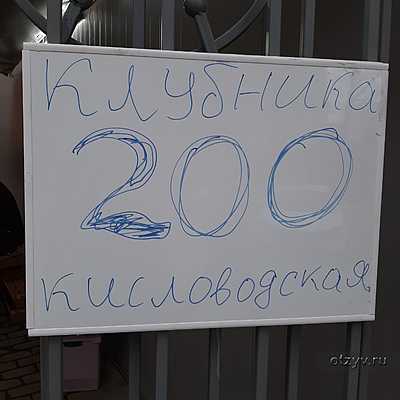 Клубника
200
кисловодская
otzyv.ru